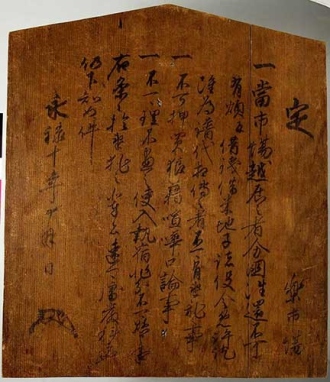 定 樂市場
一當市場越居之者分國往還不可
有煩并借銭借米地子諸役令免許訖
雖為譜代相傳之者不可有違乱之事
一不可押買狼藉喧嘩口論事
一不可理不盡之使入執宿非分不可懸申事
右条々於違犯之輩者速可處嚴科者也
仍下知如件
永禄十年十月日